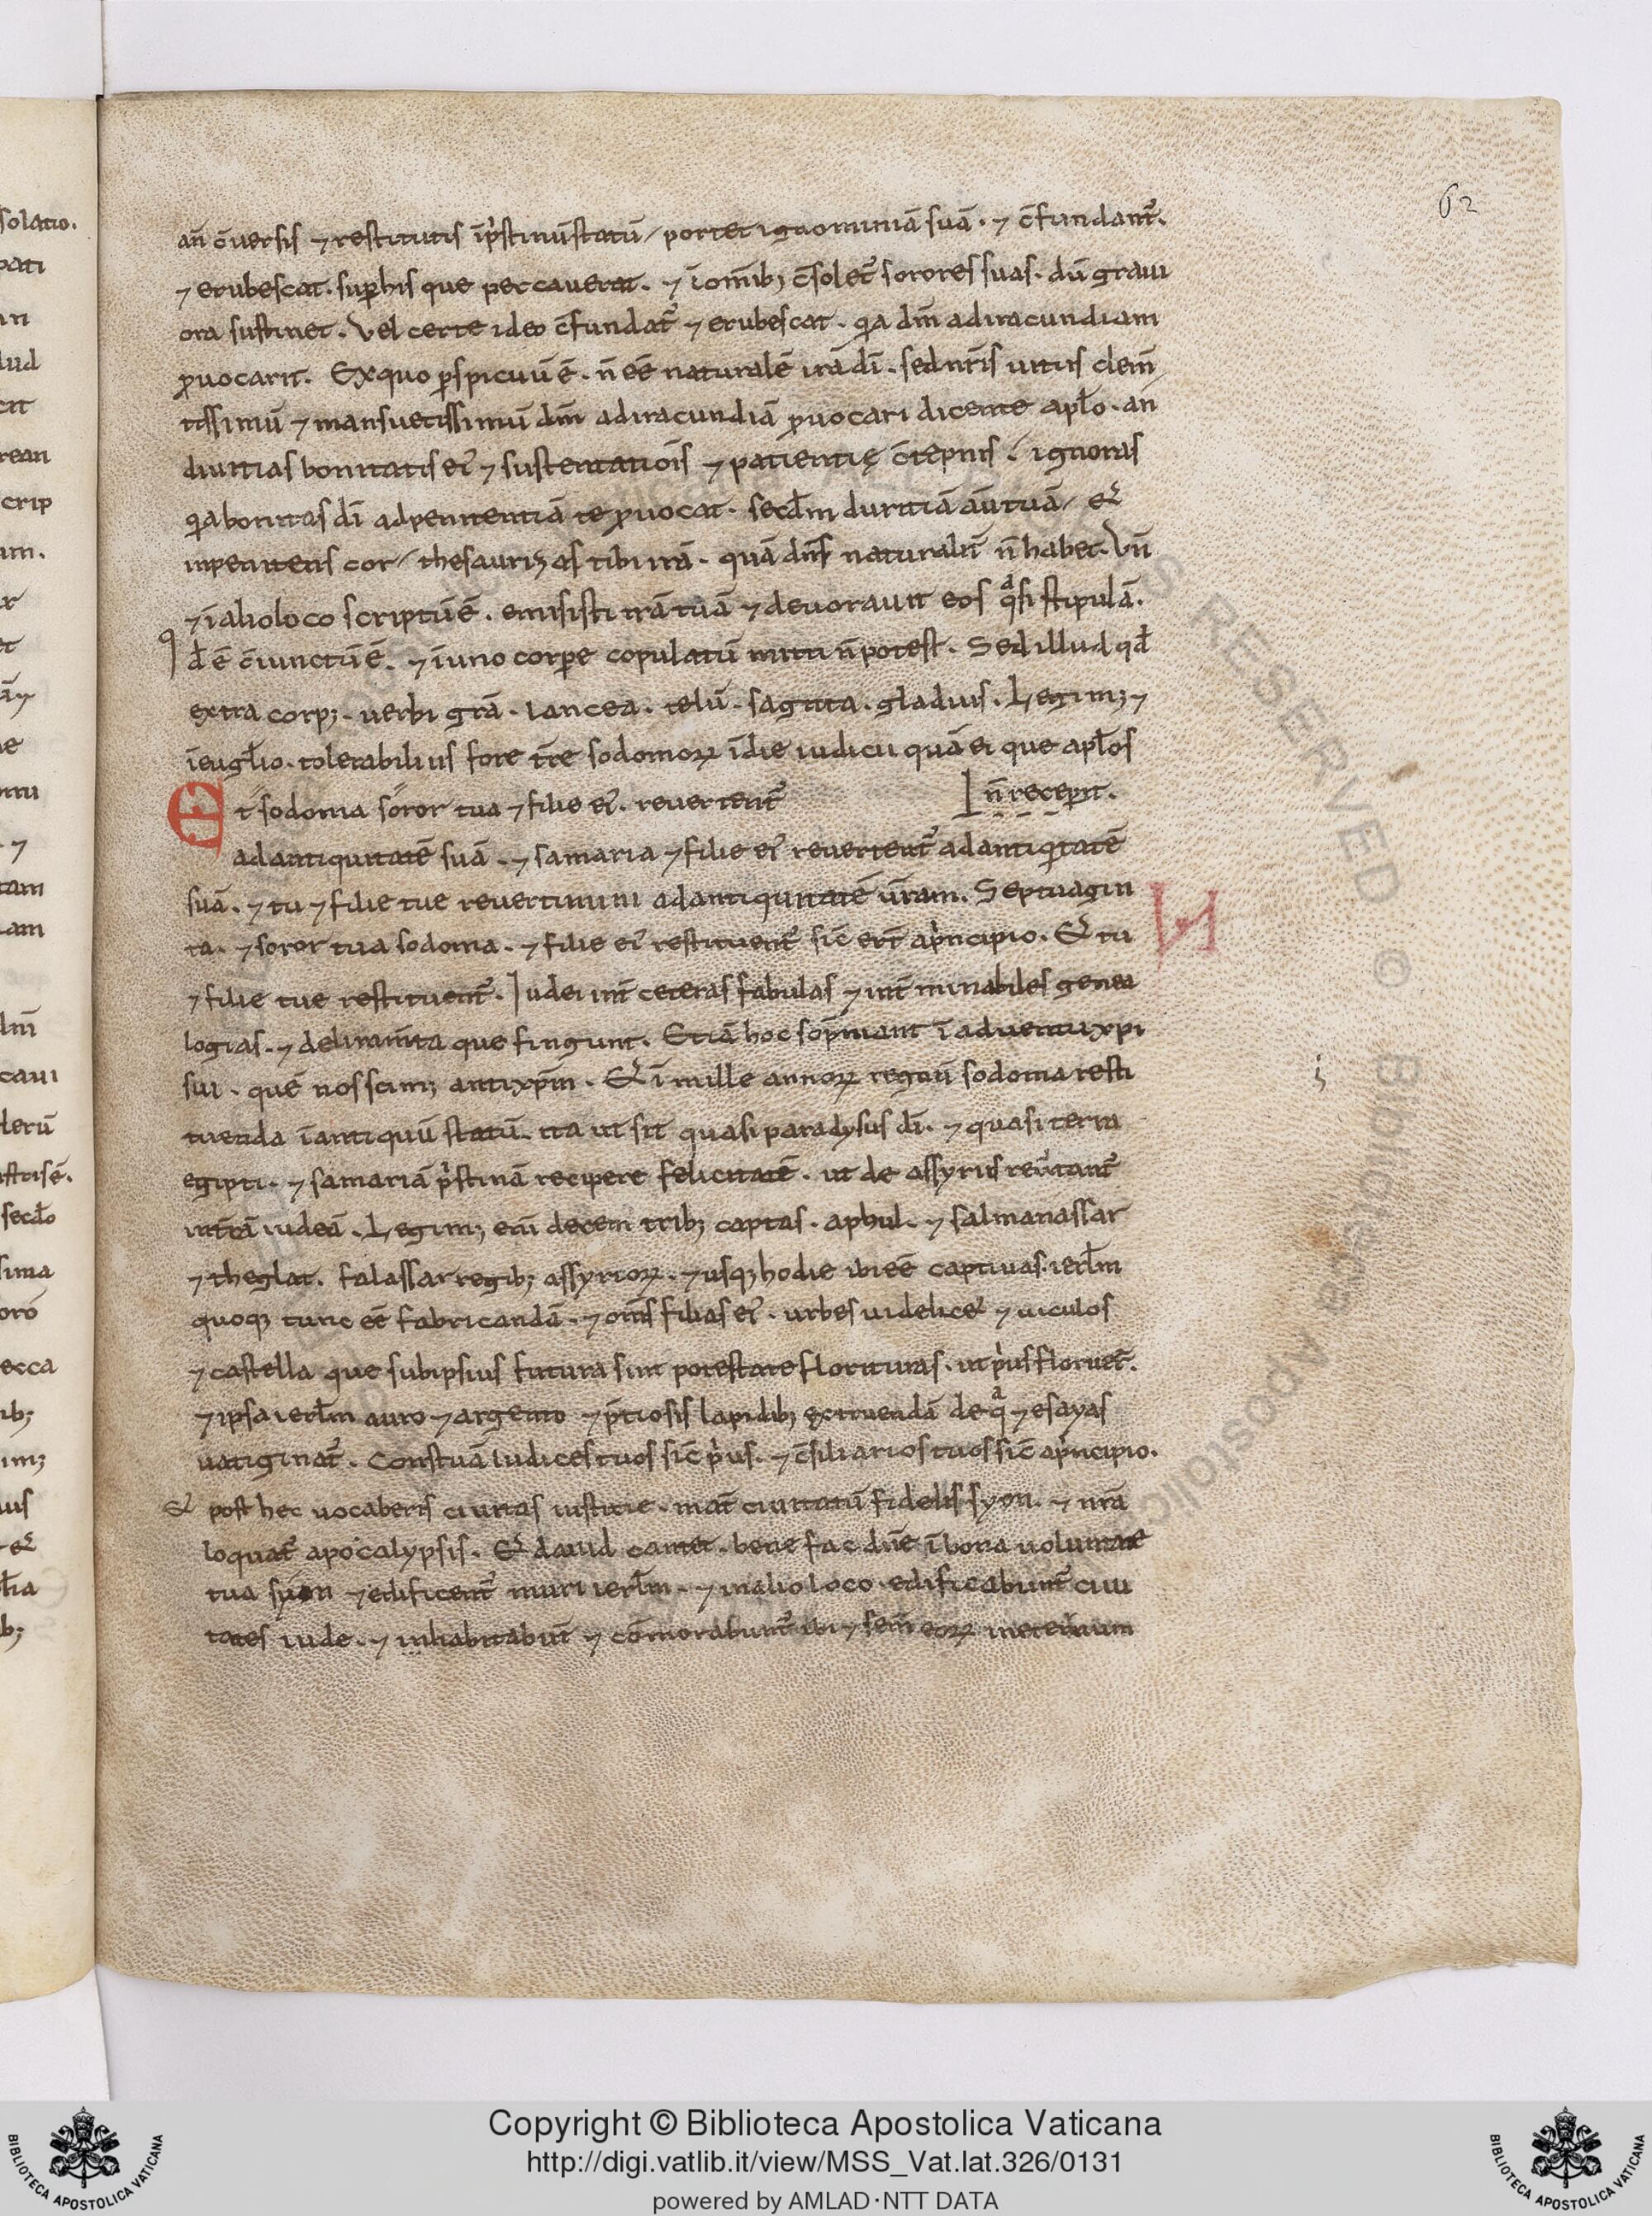 62
an̄ c̄uersis ⁊ restitutis īp'stinū statū / portet ignominiā suā · ⁊ c̄fundant᷑.
⁊ erubescat · sup his que peccauerat · ⁊ ī om̄ib; c̄solet᷑ sorores suas · dū graui
ora sustinet · Vel certe ideo c̄fundat᷑ ⁊ erubescat · q̇a dn̄m ad iracundiam
ꝓuocarit. Ex quo ꝑspicuū ē · n̄ eē naturalē irā dī · sed nr̄is uitiis clem̄
tissimū ⁊ mansuetissimū dn̄m ad iracundiā ꝓuocari dicente apl̄o · an
diuitias bonitatis ei᷑ ⁊ sustentatiōis ⁊ patientię c̄tepnis / ignoras
q̇a bonitas dī ad penitentiā te ꝓuocat · secd̄m duritiā aū tuā / et
inpenitens cor / thesaurizas tibi irā · quā dn̄s naturalit̄ n̄ habet · Vn̄
⁊ ī alio loco scriptū ē · emisisti irā tuā ⁊ deuorauit eos qᵃsi stipulā.
Qd̄ ē c̄iunctū ē · ⁊ ī uno corꝑe copulatū mitti n̄ potest · Sed illud qd̄
extra corp; · uerbi gr̄a · lancea · telū · sagitta · gladius · Legim; ⁊
ī eugl̄io · tolerabilius fore tr̄e sodomoꝝ ī die iudicii quā ei que apl̄os
n̄ receꝑit.
Et sodoma soror tua ⁊ filie ei᷑ · reuertent᷑
ad antiquitatē suā · ⁊ samaria ⁊ filie ei᷑ reuertent᷑ ad antiq̇tatē
suā · ⁊ tu ⁊ filie tue reuertimini ad antiquitatē ur̄am · Septuagin
ta · ⁊ soror tua sodoma · ⁊ filie ei᷑ restituent᷑ sic̄ er̄t a p'ncipio · Et tu
⁊ filie tue restituent᷑ · Iudei int̄ ceteras fabulas ⁊ int̄minabiles genea
logias · ⁊ deliram̄ta que fingunt · Etiā hoc sop̄niant ī aduentu xp̄i
sui · quē nos scim; antixp̄m · Et ī mille annoꝝ regnū sodoma resti
tuenda ī antiquū statū · ita ut sit quasi paradysus dī · ⁊ quasi terra
egipti · ⁊ samariā p'stinā recipere felicitatē · ut de assyriis reūtant᷑
int̄rā iudeā · Legim; enī decem trib; captas · a phul · ⁊ salmanassar
⁊ theglat · falassar regib; assyrioꝝ · ⁊ usq; hodie ibi eē captiuas · ierl̄m
quoq; tunc eē fabricandā · ⁊ om̄s filias ei᷑ · urbes uidelicet ⁊ uiculos
⁊ castella que sub ipsius futura sint potestate florituras · ut p'us floruer̄.
⁊ ipsa ierl̄m auro ⁊ argento ⁊ p̄tiosis lapidib; extruendā de qᵃ ⁊ esayas
uaticinat᷑ · Constituā iudices tuos sic̄ p'us · ⁊ c̄siliarios tuos sic̄ a p'ncipio ·
Et post hec uocaberis ciuitas iustitie · mat̄ ciuitatū fidelis syon · ⁊ nr̄a
loquat᷑ apocalypsis · Et dauid cantet · bene fac dn̄e ī bona uoluntate
tua syon ⁊ edificent᷑ muri ierl̄m · ⁊ in alio loco · edificabunt᷑ ciui
tates iude · ⁊ inhabitabunt̄ ⁊ cōmorabunt᷑ ibi ⁊ sem̄ eoꝝ in eternum
Copyright © Biblioteca Apostolica Vaticana
http://digi.vatlib.it/view/MSS_Vat.lat.326/0131
powered by AMLAD·NTT DATA
BIBLIOTECA APOSTOLICA VATICANA
BIBLIOTECA APOSTOLICA VATICANA